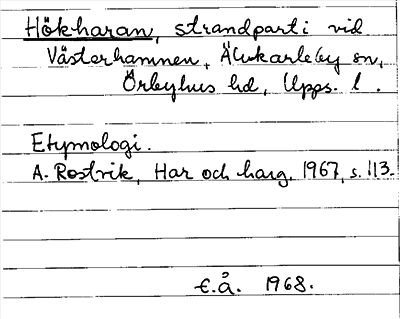 Hökharan, strandparti vid
Västerhamnen, Älvkarleby sn,
Örbyhus hd, Upps. l.
Etymologi.
A. Rostvik, Har och harg, 1967, s. 113.
f.å. 1968.